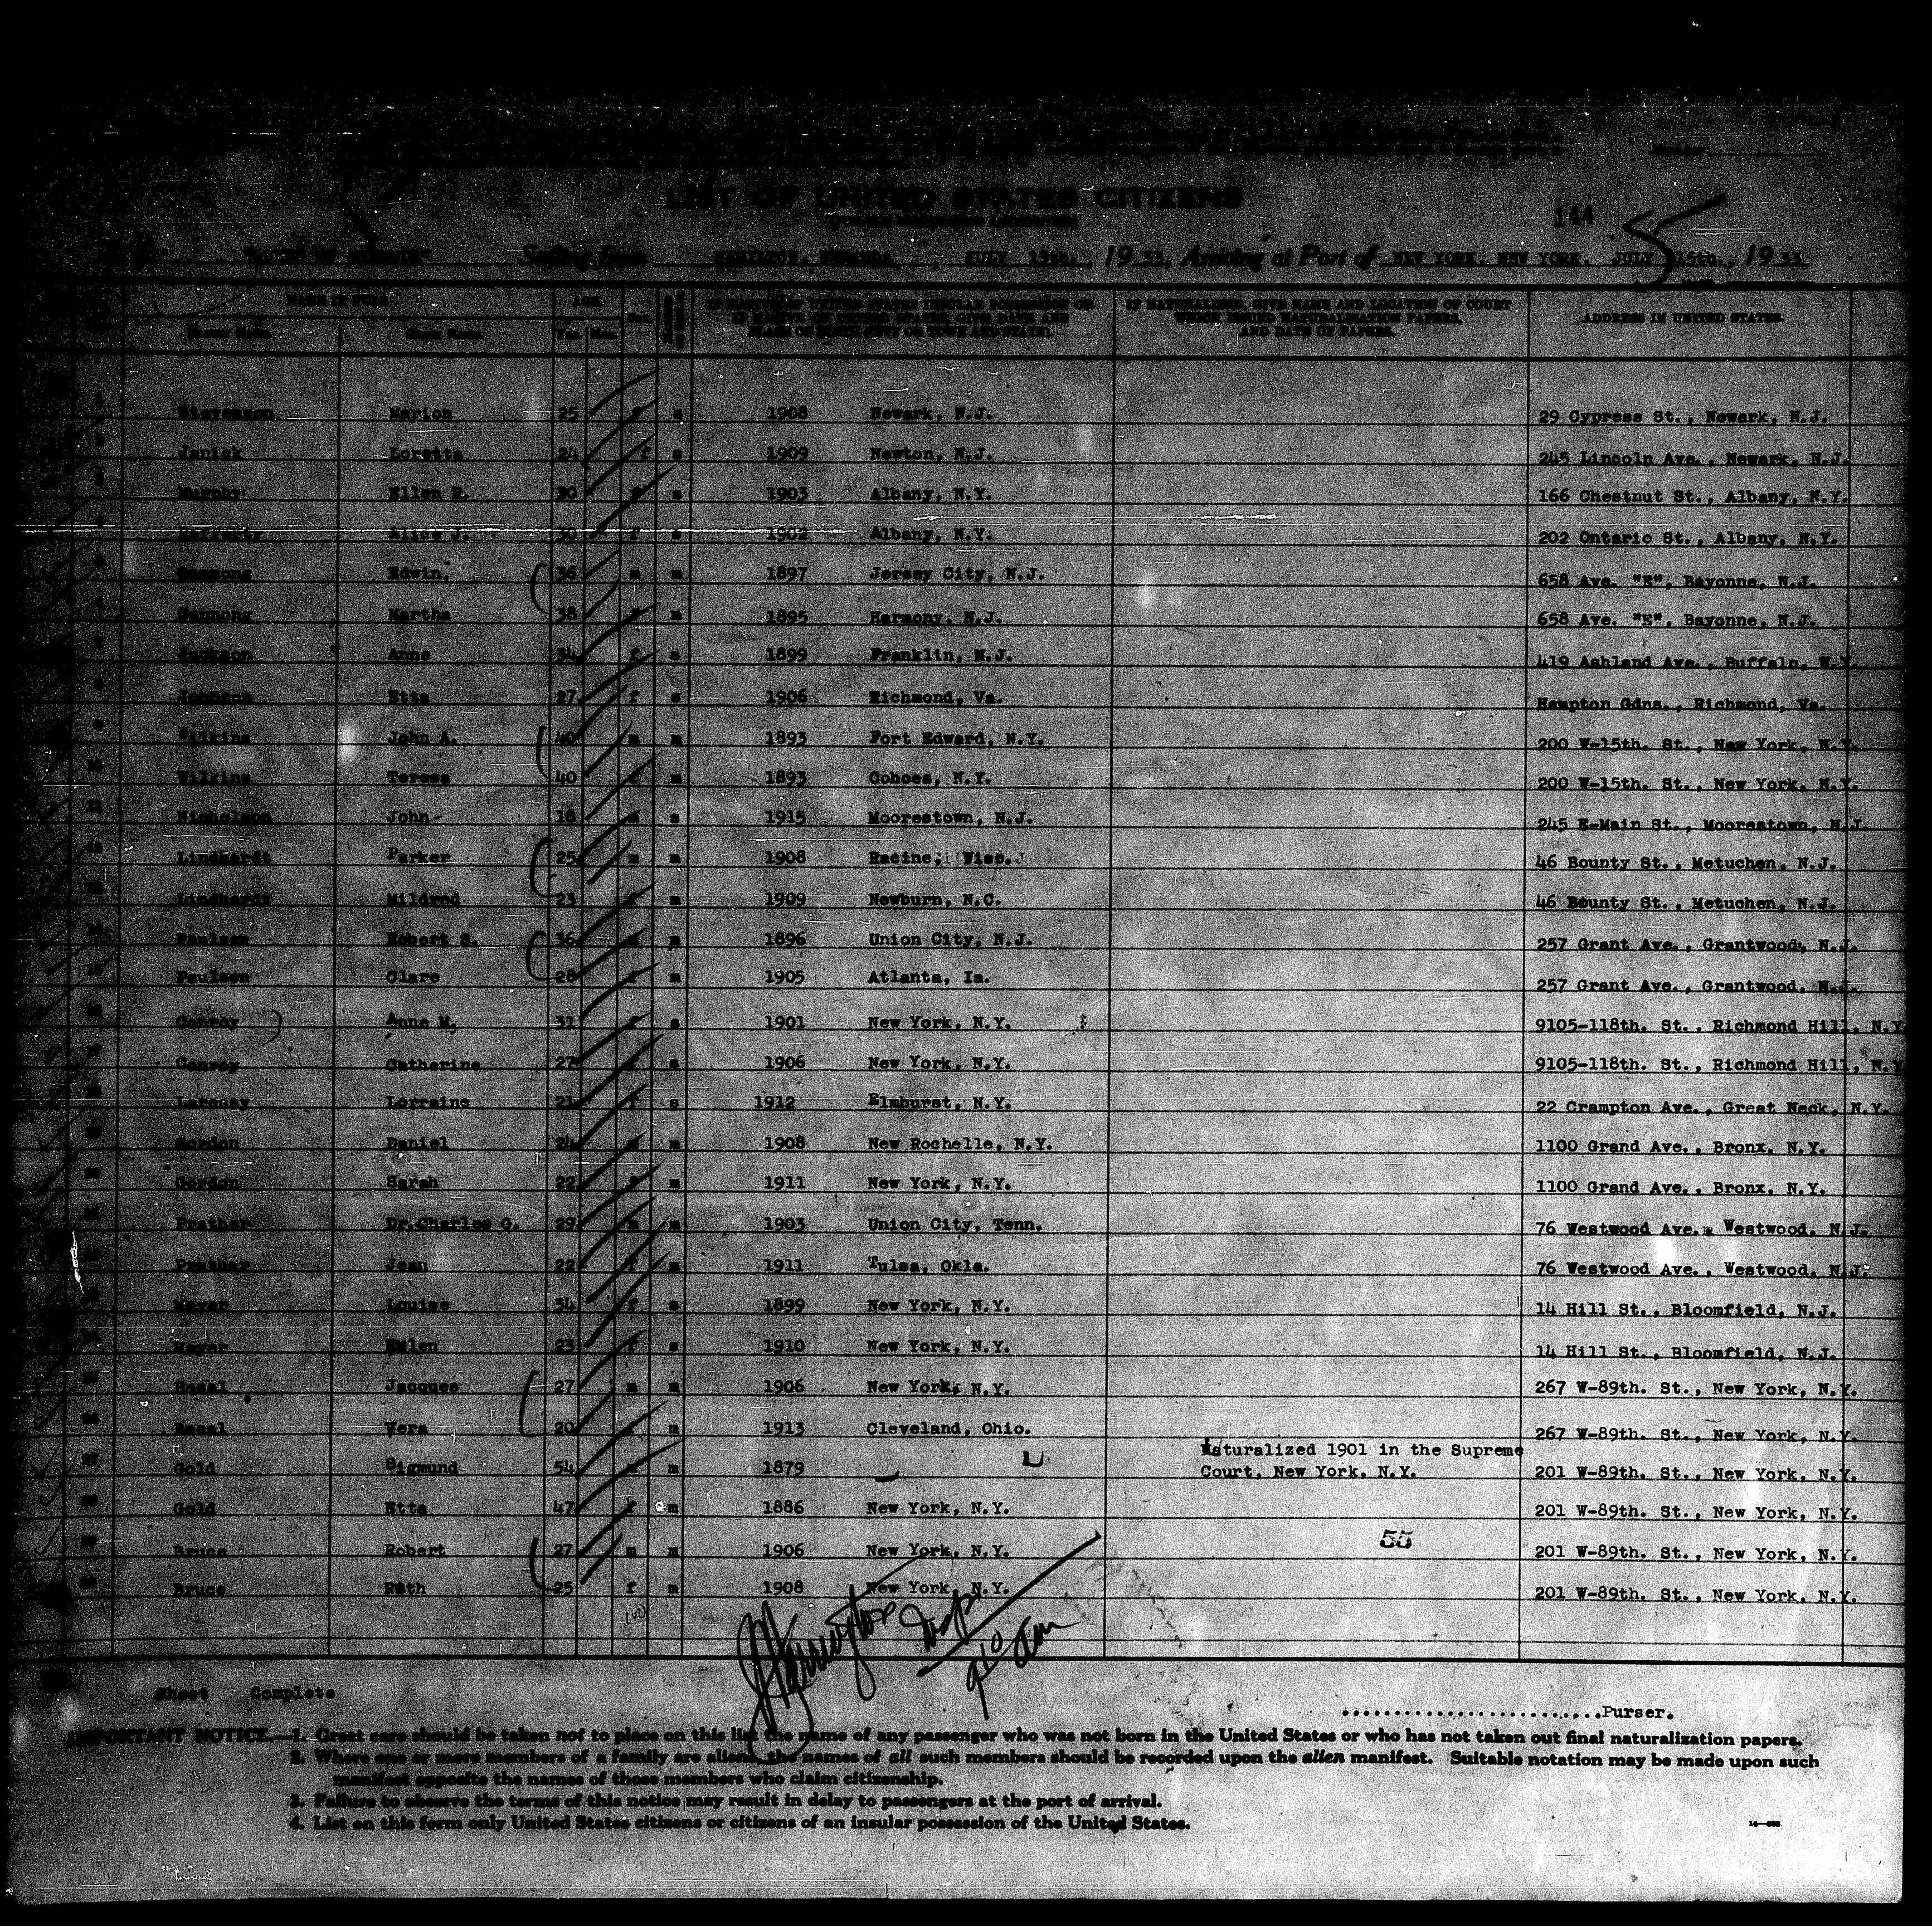 LIST OF UNITED STATES CITIZENS
144
Sailing from HAMILTON, BERMUDA, JULY 13th., 1933, Arriving at Port of NEW YORK, NEW YORK, JULY 15th., 1933
NAME IN FULL AGE IF NATIVE OF UNITED STATES INSULAR POSSESSION OR IF NATURALIZED, GIVE NAME AND LOCATION OF COURT
IF NATIVE OF UNITED STATES, GIVE DATE AND WHICH ISSUED NATURALIZATION PAPERS, ADDRESS IN UNITED STATES.
PLACE OF BIRTH (CITY OR TOWN AND STATE). AND DATE OF PAPERS.
Stevenson Marion 25 f s 1908 Newark, N.J. 29 Cypress St., Newark, N.J.
Janick Loretta 24 f s 1909 Newton, N.J. 245 Lincoln Ave., Newark, N.J.
Murphy Ellen R. 30 f s 1903 Albany, N.Y. 166 Chestnut St., Albany, N.Y.
Rafferty Alice J. 30 f s 1902 Albany, N.Y. 202 Ontario St., Albany, N.Y.
Edwin 36 m m 1897 Jersey City, N.J. 658 Ave. "E", Bayonne, N.J.
Martha 38 f m 1895 Harmony, N.J. 658 Ave. "E", Bayonne, N.J.
Jackson Anne 34 f s 1899 Franklin, N.J. 419 Ashland Ave., Buffalo, N.Y.
Johnson Etta 27 f s 1906 Richmond, Va. Hampton Gdns., Richmond, Va.
Wilkins John A. 40 m m 1893 Fort Edward, N.Y. 200 W-15th. St., New York, N.Y.
Wilkins Teresa 40 f m 1893 Cohoes, N.Y. 200 W-15th. St., New York, N.Y.
Nicholson John 18 m s 1915 Moorestown, N.J. 245 E-Main St., Moorestown, N.J.
Lindhardt Parker 25 m m 1908 Racine, Wisc. 46 Bounty St., Metuchen, N.J.
Lindhardt Mildred 23 f m 1909 Newburn, N.C. 46 Bounty St., Metuchen, N.J.
Paulsen Robert S. 36 m m 1896 Union City, N.J. 257 Grant Ave., Grantwood, N.J.
Paulsen Clare 28 f m 1905 Atlanta, Ia. 257 Grant Ave., Grantwood, N.J.
Conroy Anne M. 31 f s 1901 New York, N.Y. 9105-118th. St., Richmond Hill, N.Y.
Conroy Catherine 27 f s 1906 New York, N.Y. 9105-118th. St., Richmond Hill, N.Y.
Lorraine 21 f s 1912 Elmhurst, N.Y. 22 Crampton Ave., Great Neck, N.Y.
Gordon Daniel 24 m m 1908 New Rochelle, N.Y. 1100 Grand Ave., Bronx, N.Y.
Gordon Sarah 22 f m 1911 New York, N.Y. 1100 Grand Ave., Bronx, N.Y.
Prather Dr. Charles G. 29 m m 1903 Union City, Tenn. 76 Westwood Ave., Westwood, N.J.
Prather Jean 22 f m 1911 Tulsa, Okla. 76 Westwood Ave., Westwood, N.J.
Mayer Louise 34 f s 1899 New York, N.Y. 14 Hill St., Bloomfield, N.J.
Mayer Helen 23 f s 1910 New York, N.Y. 14 Hill St., Bloomfield, N.J.
Jacques 27 m m 1906 New York, N.Y. 267 W-89th. St., New York, N.Y.
Vera 20 f m 1913 Cleveland, Ohio. 267 W-89th. St., New York, N.Y.
Naturalized 1901 in the Supreme
Gold Sigmund 54 m m 1879 Court, New York, N.Y. 201 W-89th. St., New York, N.Y.
Gold Etta 47 f m 1886 New York, N.Y. 201 W-89th. St., New York, N.Y.
55
Bruce Robert 27 m m 1906 New York, N.Y. 201 W-89th. St., New York, N.Y.
Bruce Ruth 25 f m 1908 New York, N.Y. 201 W-89th. St., New York, N.Y.
Sheet Complete
Purser.
IMPORTANT NOTICE.—1. Great care should be taken not to place on this list the name of any passenger who was not born in the United States or who has not taken out final naturalization papers.
2. Where one or more members of a family are aliens, the names of all such members should be recorded upon the alien manifest. Suitable notation may be made upon such
manifest opposite the names of those members who claim citizenship.
3. Failure to observe the terms of this notice may result in delay to passengers at the port of arrival.
4. List on this form only United States citizens or citizens of an insular possession of the United States.